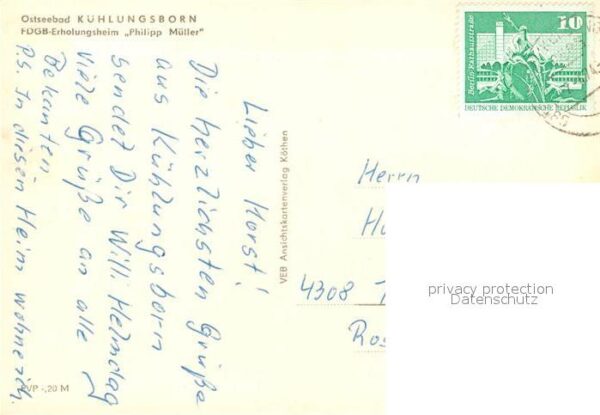 Ostseebad KÜHLUNGSBORN
FDGB-Erholungsheim „Philipp Müller"
Lieber Horst!
Die herzlichsten Grüße
aus Kühlungsborn
sendet Dir Willi Helmdag
Viele Grüße an alle
Bekanten
PS. In diesen Heim wohne ich.
EVP -,20 M
VEB Ansichtskartenverlag Köthen
10
Berlin·Rathausstraße
DEUTSCHE DEMOKRATISCHE REPUBLIK
Herrn
4308
privacy protection
Datenschutz